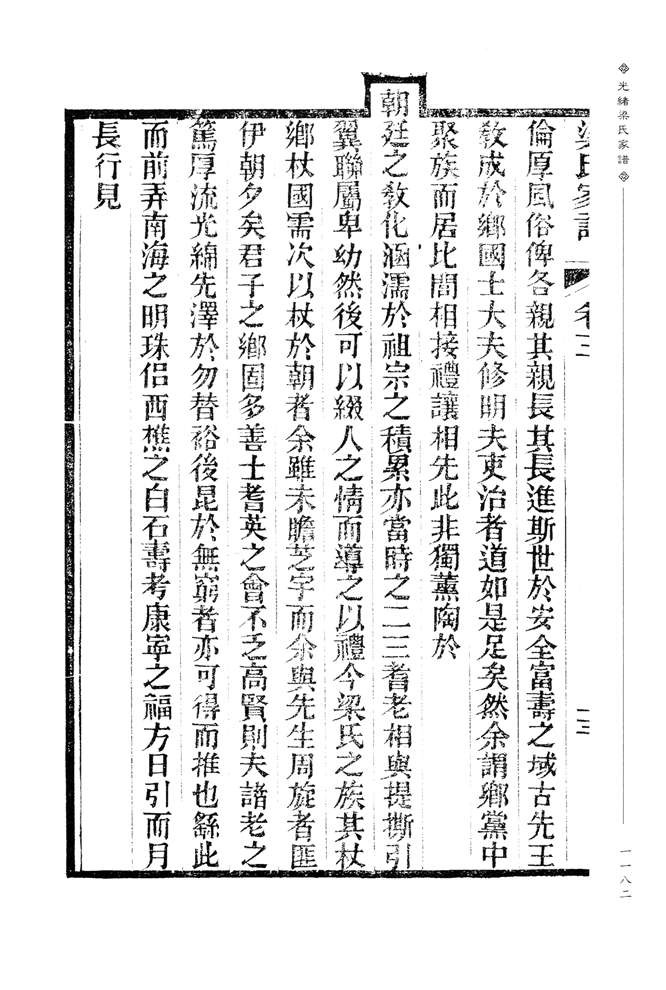 光緒梁氏家譜
一一八二
梁氏家譜 卷二 二三
倫厚風俗俾各親其親長其長進斯世於安全富壽之域古先王
敎成於鄉國士大夫修明夫吏治者道如是足矣然余謂鄉黨中
聚族而居比閭相接禮讓相先此非獨薰陶於
朝廷之敎化涵濡於祖宗之積累亦當時之二三耆老相與提撕引
翼聯屬卑幼然後可以綴人之情而導之以禮今梁氏之族其杖
鄉杖國需次以杖於朝者余雖未瞻芝宇而余與先生周旋者匪
伊朝夕矣君子之鄉固多善士耆英之會不乏高賢則夫諸老之
篤厚流光綿先澤於勿替裕後昆於無窮者亦可得而推也繇此
而前弄南海之明珠侶西樵之白石壽考康寧之福方日引而月
長行見